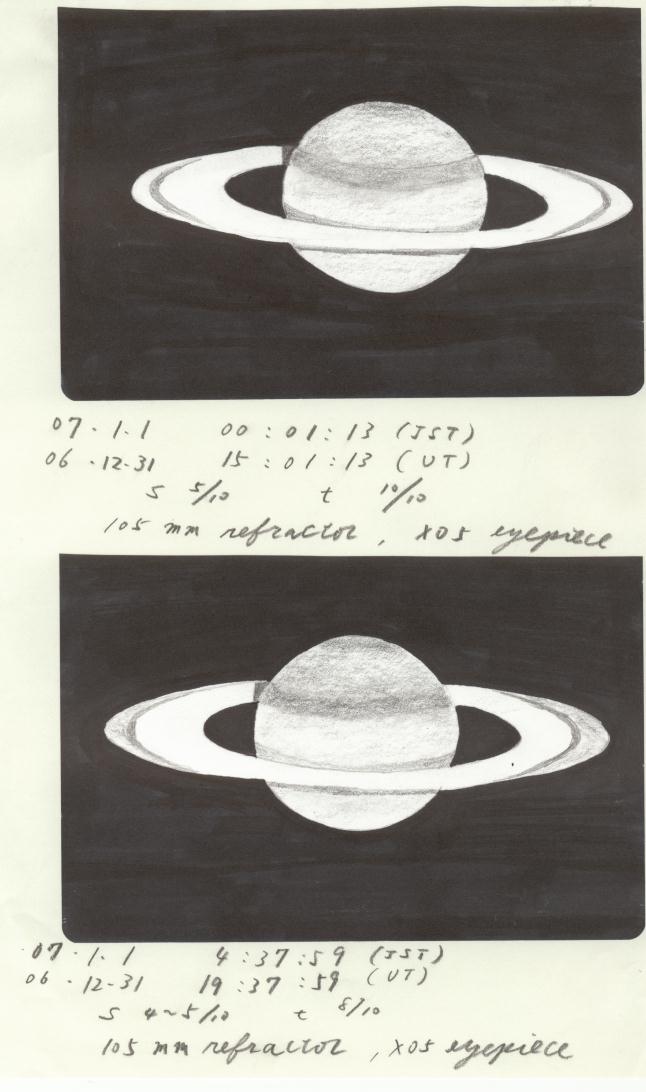 07・1・1 00:01:13 (JST)
06・12・31 15:01:13 (UT)
S 5/10 t 10/10
105 mm refractor, XO5 eyepiece
07・1・1 4:37:59 (JST)
06・12・31 19:37:59 (UT)
S 4~5/10 t 8/10
105 mm refractor, XO5 eyepiece